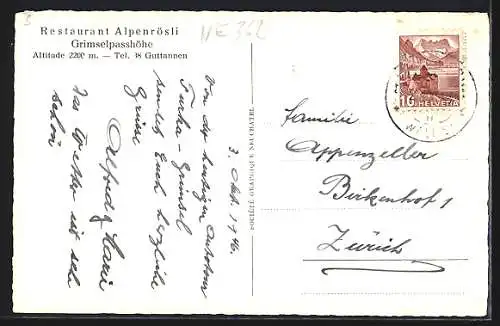 Restaurant Alpenrösli
Grimselpasshöhe
Altitude 2200 m. — Tel. 48 Guttannen
NE 362
3. Okt. 1940.
Von der heutigen Autotour
Furka-Grimsel
sendet Euch herzliche
Grüsse
Alfred & Marie
Das Wetter ist sehr
schön
SOCIÉTÉ GRAPHIQUE NEUCHATEL
10 HELVETIA
Familie
Appenzeller
Birkenhof 1
Zürich